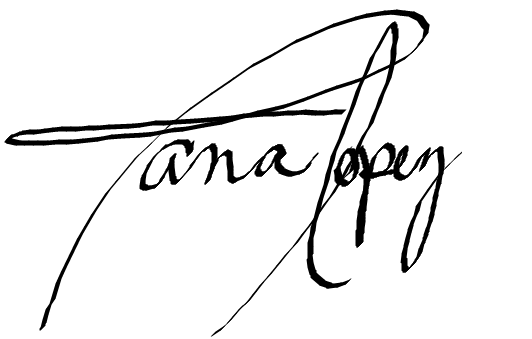 Tana Lopez